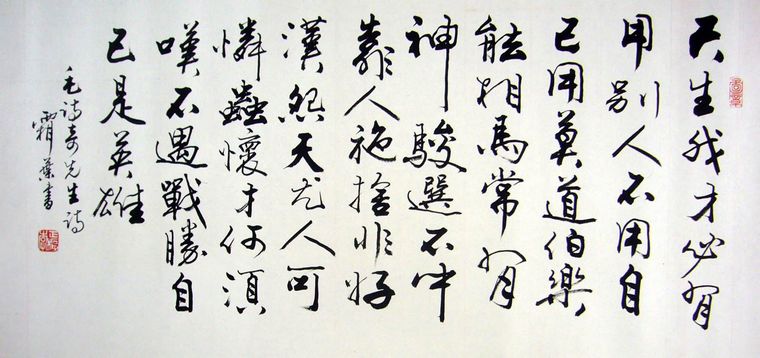 天生我才必有
用别人不用自
己用莫道伯樂
能相馬常有
神駿選不中
靠人施捨非好
漢怨天尤人可
憐蟲懷才何須
嘆不遇戰勝自
己是英雄
毛诗奇先生诗
霜葉書